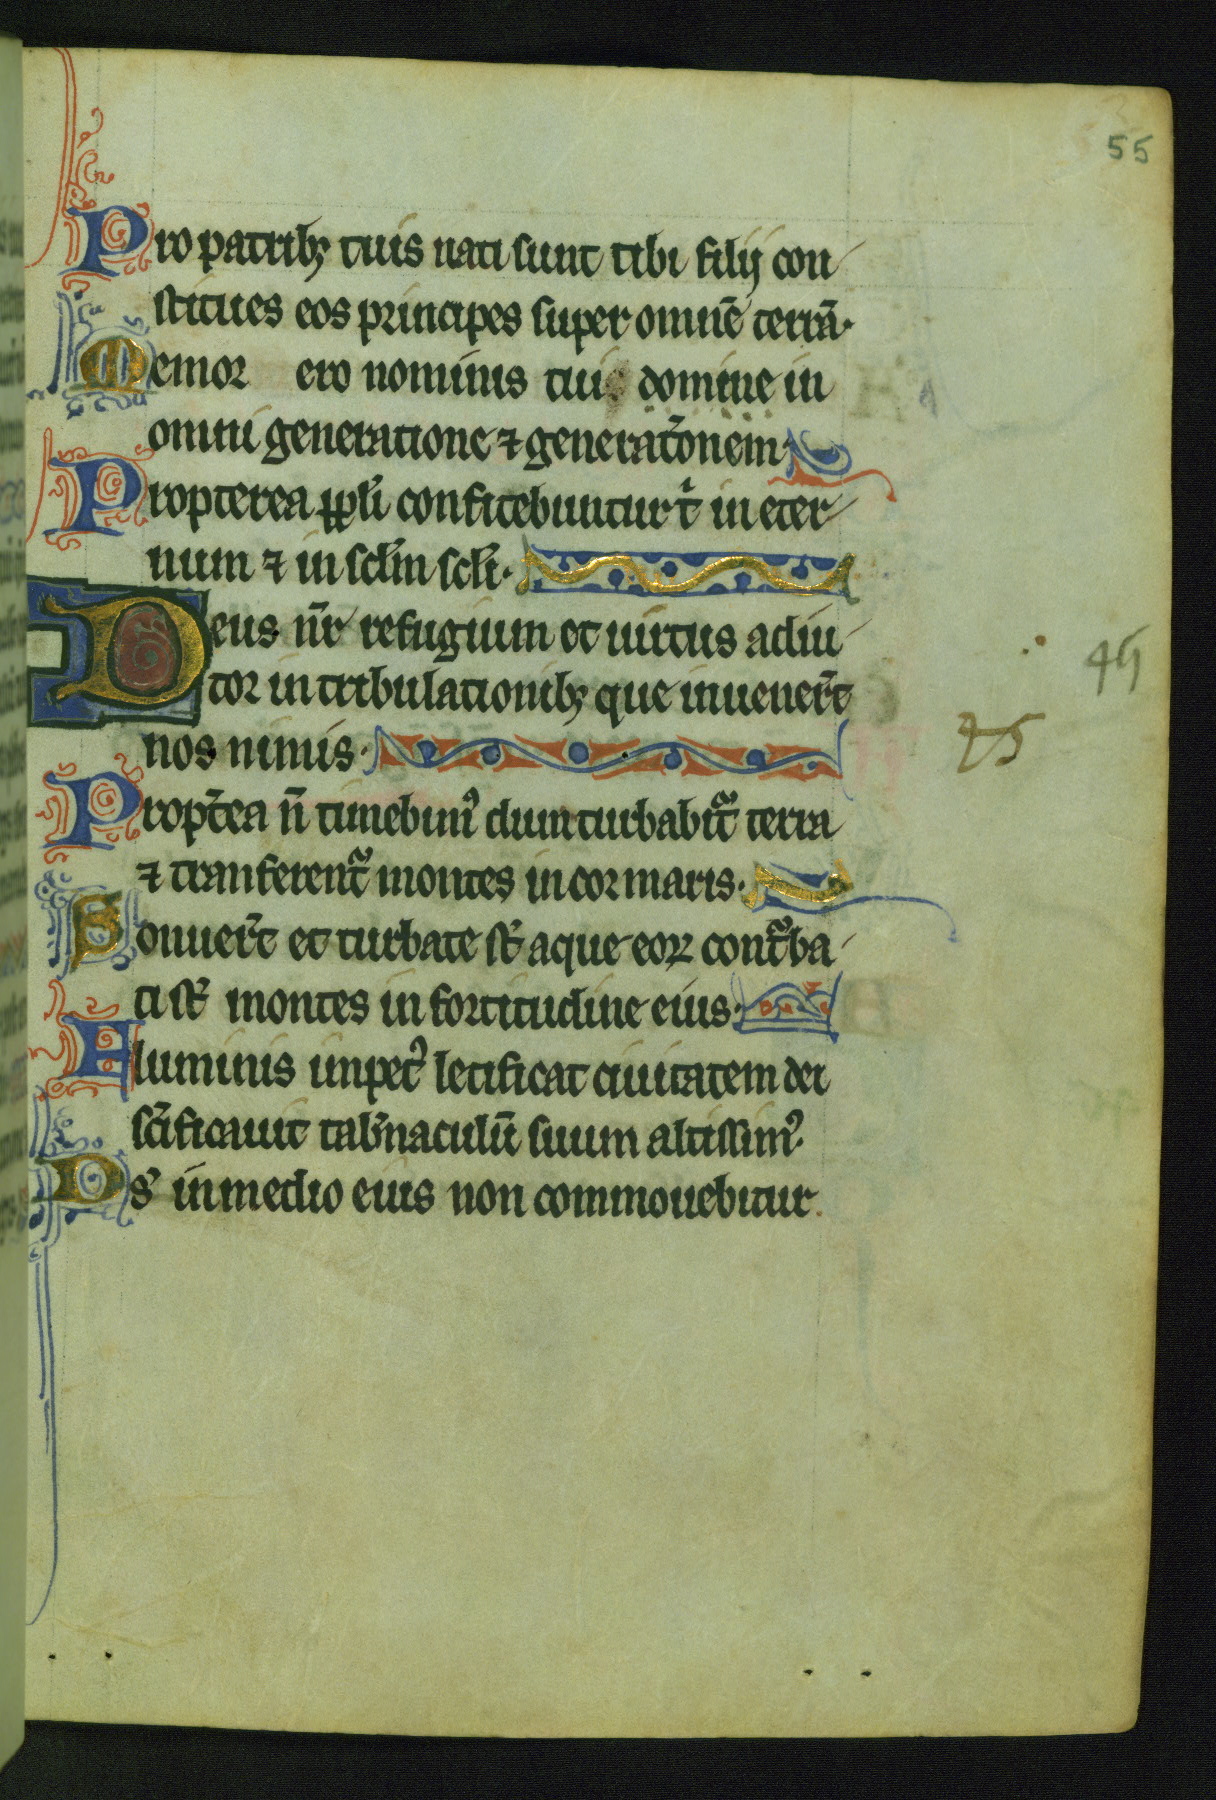 55
Pro patribꝫ tuis nati sunt tibi filij con
stitues eos principes super omnē terrā.
Memor ero nominis tui domine in
omni generatione ⁊ generat̄onem.
Propterea ppli confitebuntur t̄ in eter
num ⁊ in sclm scli.
Deus nr̄ refugium et uirtus adiu
tor in tribulationibꝫ que inuener̄t
nos nimis.
Propt̄ea n̄ timebimꝰ dum turbabit̄ terra
⁊ tranferent̄ montes in cor maris.
Sonuer̄t et turbate st̄ aque eoꝝ cont̄ba
ti st̄ montes in fortitudine eius.
Fluminis impetꝰ letificat ciuitatem dei
sc̄ificauit tab̄naculū suum altissimꝰ.
Ds̄ in medio eius non commouebitur.
45
45